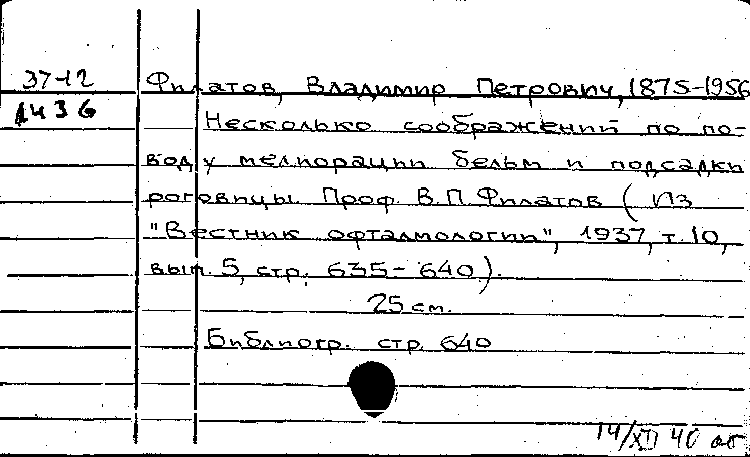 37-12
1436
Филатов, Владимир Петрович, 1875-1956
Несколько соображений по по-
воду мелиорации бельм и подсадки
роговицы. Проф. В.П. Филатов (Из
"Вестник офталмологии", 1937, т. 10,
вып. 5, стр. 635-640).
25 см.
Библиогр. стр. 640
14/XII 40